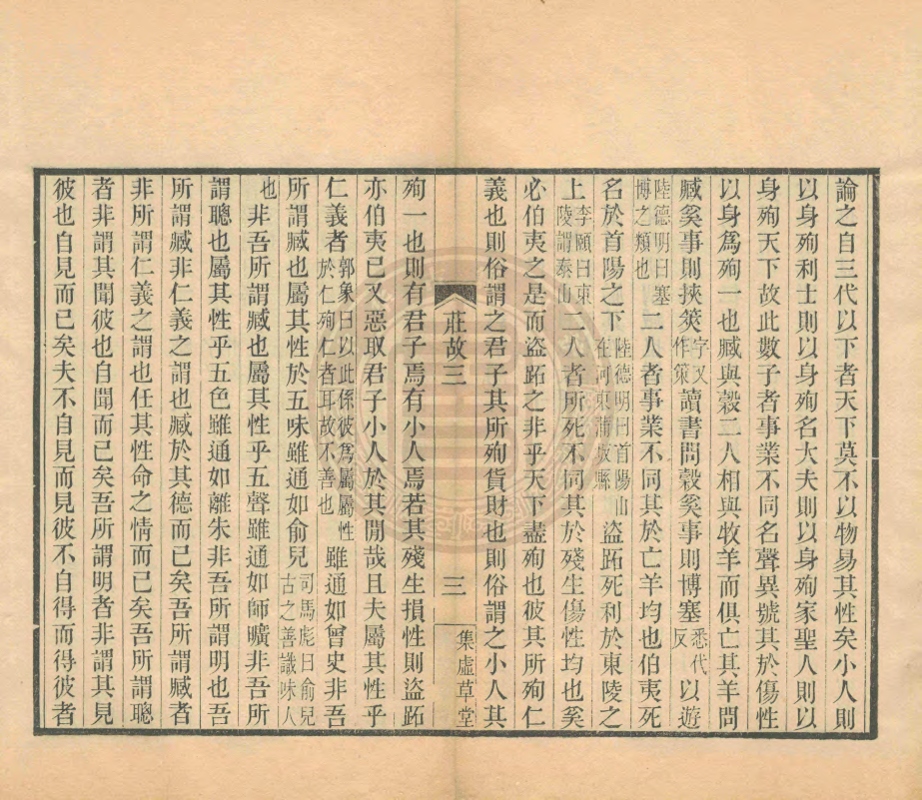 論之自三代以下者天下莫不以物易其性矣小人則
以身殉利士則以身殉名大夫則以身殉家聖人則以
身殉天下故此數子者事業不同名聲異號其於傷性
以身爲殉一也臧與穀二人相與牧羊而俱亡其羊問
臧奚事則挾筴字又作策讀書問穀奚事則博塞悉代反以遊
陸德明曰塞博之類也二人者事業不同其於亡羊均也伯夷死
名於首陽之下陸德明曰首陽山在河東蒲坂縣盜跖死利於東陵之
上李頤曰東陵謂泰山二人者所死不同其於殘生傷性均也奚
必伯夷之是而盜跖之非乎天下盡殉也彼其所殉仁
義也則俗謂之君子其所殉貨財也則俗謂之小人其
莊故三
三
集虛草堂
殉一也則有君子焉有小人焉若其殘生損性則盜跖
亦伯夷已又惡取君子小人於其閒哉且夫屬其性乎
仁義者郭象曰以此係彼爲屬屬性於仁殉仁者耳故不善也雖通如曾史非吾
所謂臧也屬其性於五味雖通如俞兒司馬彪曰俞兒古之善識味人
也非吾所謂臧也屬其性乎五聲雖通如師曠非吾所
謂聰也屬其性乎五色雖通如離朱非吾所謂明也吾
所謂臧非仁義之謂也臧於其德而已矣吾所謂臧者
非所謂仁義之謂也任其性命之情而已矣吾所謂聰
者非謂其聞彼也自聞而已矣吾所謂明者非謂其見
彼也自見而已矣夫不自見而見彼不自得而得彼者